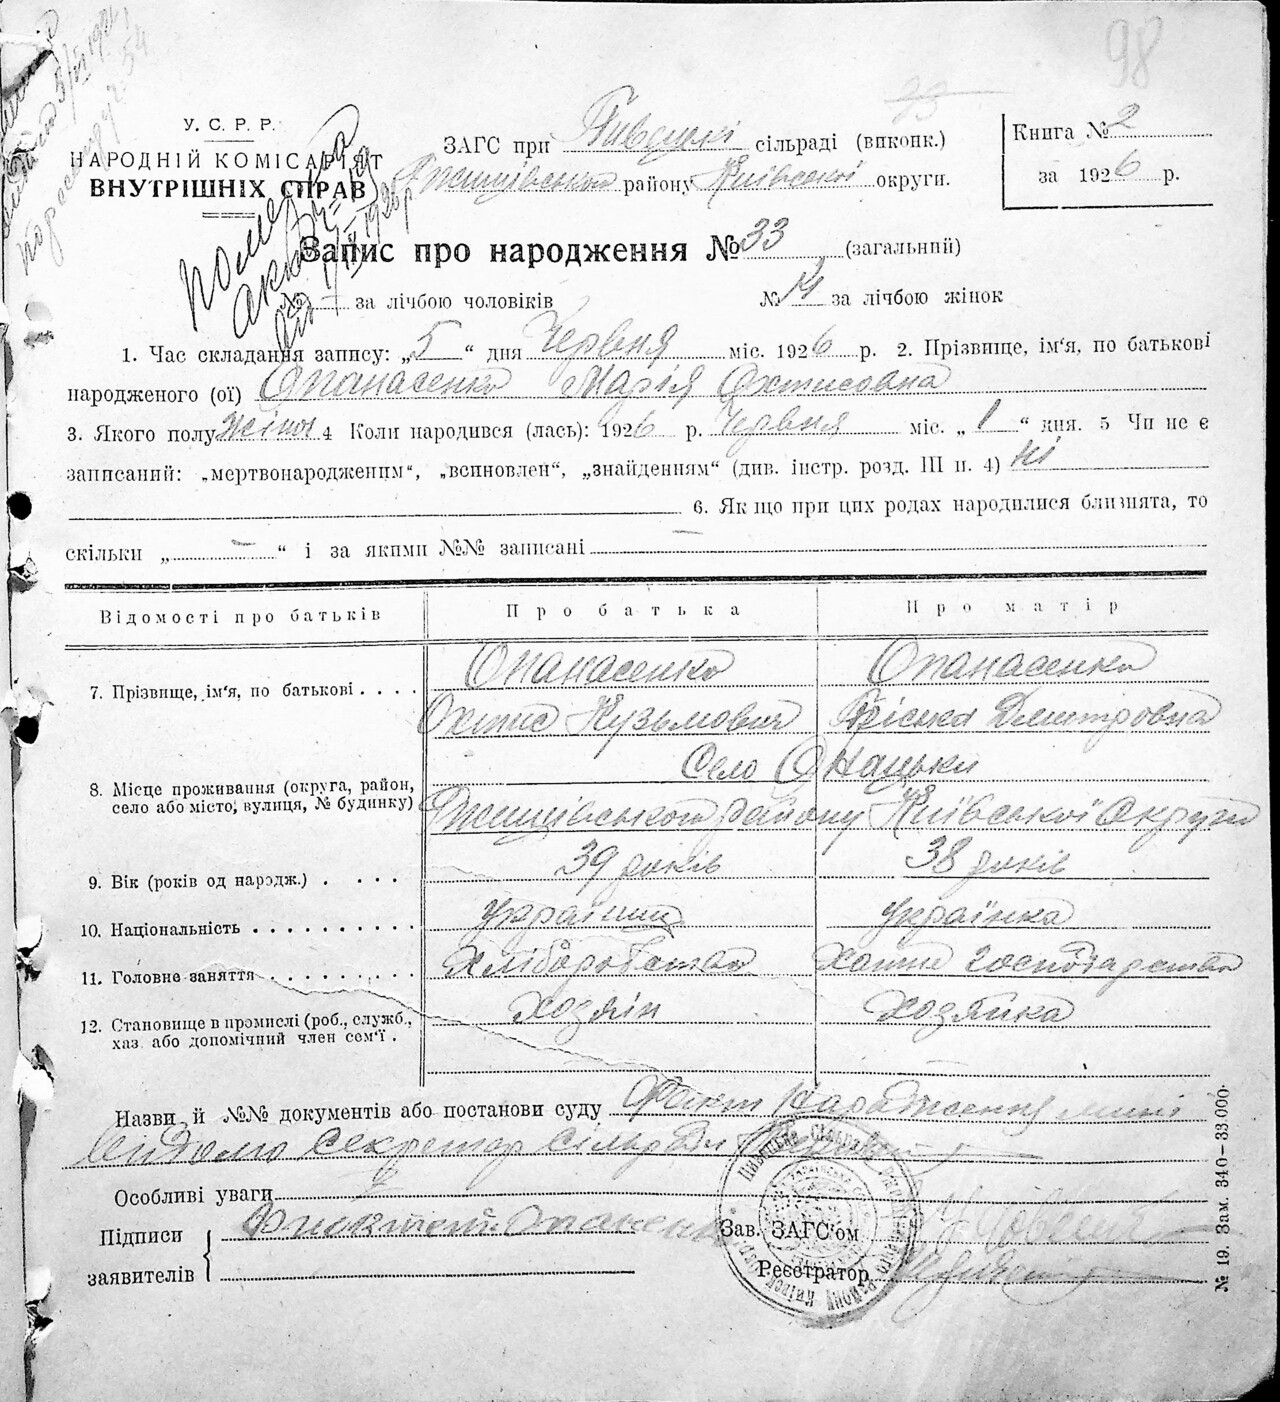 98
У. С. Р. Р.
НАРОДНІЙ КОМІСАРІЯТ
ВНУТРІШНІХ СПРАВ
ЗАГС при Пивецькі сільраді (виконк.)
Ржищівського району Київської округи.
Книга № 2
за 1926 р.
Запис про народження № 33 (загальний)
№ — за лічбою чоловіків № 14 за лічбою жінок
1. Час складання запису: „5“ дня Червня міс. 1926 р. 2. Прізвище, ім‘я, по батькові
народженого (ої) Опанасенко Марія Охтисовна
3. Якого полу жіноч 4 Коли народився (лась): 1926 р. Червня міс. „1“ дня. 5 Чи не є
записаний: „мертвонародженим“, „всиновлен“, „знайденням“ (див. інстр. розд. III п. 4) ні
6. Якщо при цих родах народилися близнята, то
скільки „ — “ і за якими №№ записані —
Відомості про батьків Про батька Про матір
7. Прізвище, ім‘я, по батькові . . . . Опанасенко Опанасенко
Охтис Кузьмович Пріська Дмитровна
8. Місце проживання (округа, район, село або місто, вулиця, № будинку) Село Онацьки
Ржищівського району Київської Округи
9. Вік (років од народж.) . . . . 39 років 38 років
10. Національність . . . . . . . . . . українець українка
11. Головне заняття . . . . . . . . Хліборобство Хатне господарство
12. Становище в промислі (роб., служб., хаз або допомічний член сем‘ї . Хозяїн Хозяйка
Назви й №№ документів або постанови суду Факт народження мині
відомо Секретор Сільради
Особливі уваги
Підписи
заявителів
Зав. ЗАГС‘ом
Реєстратор
№ 19. Зам. 340—33.000.